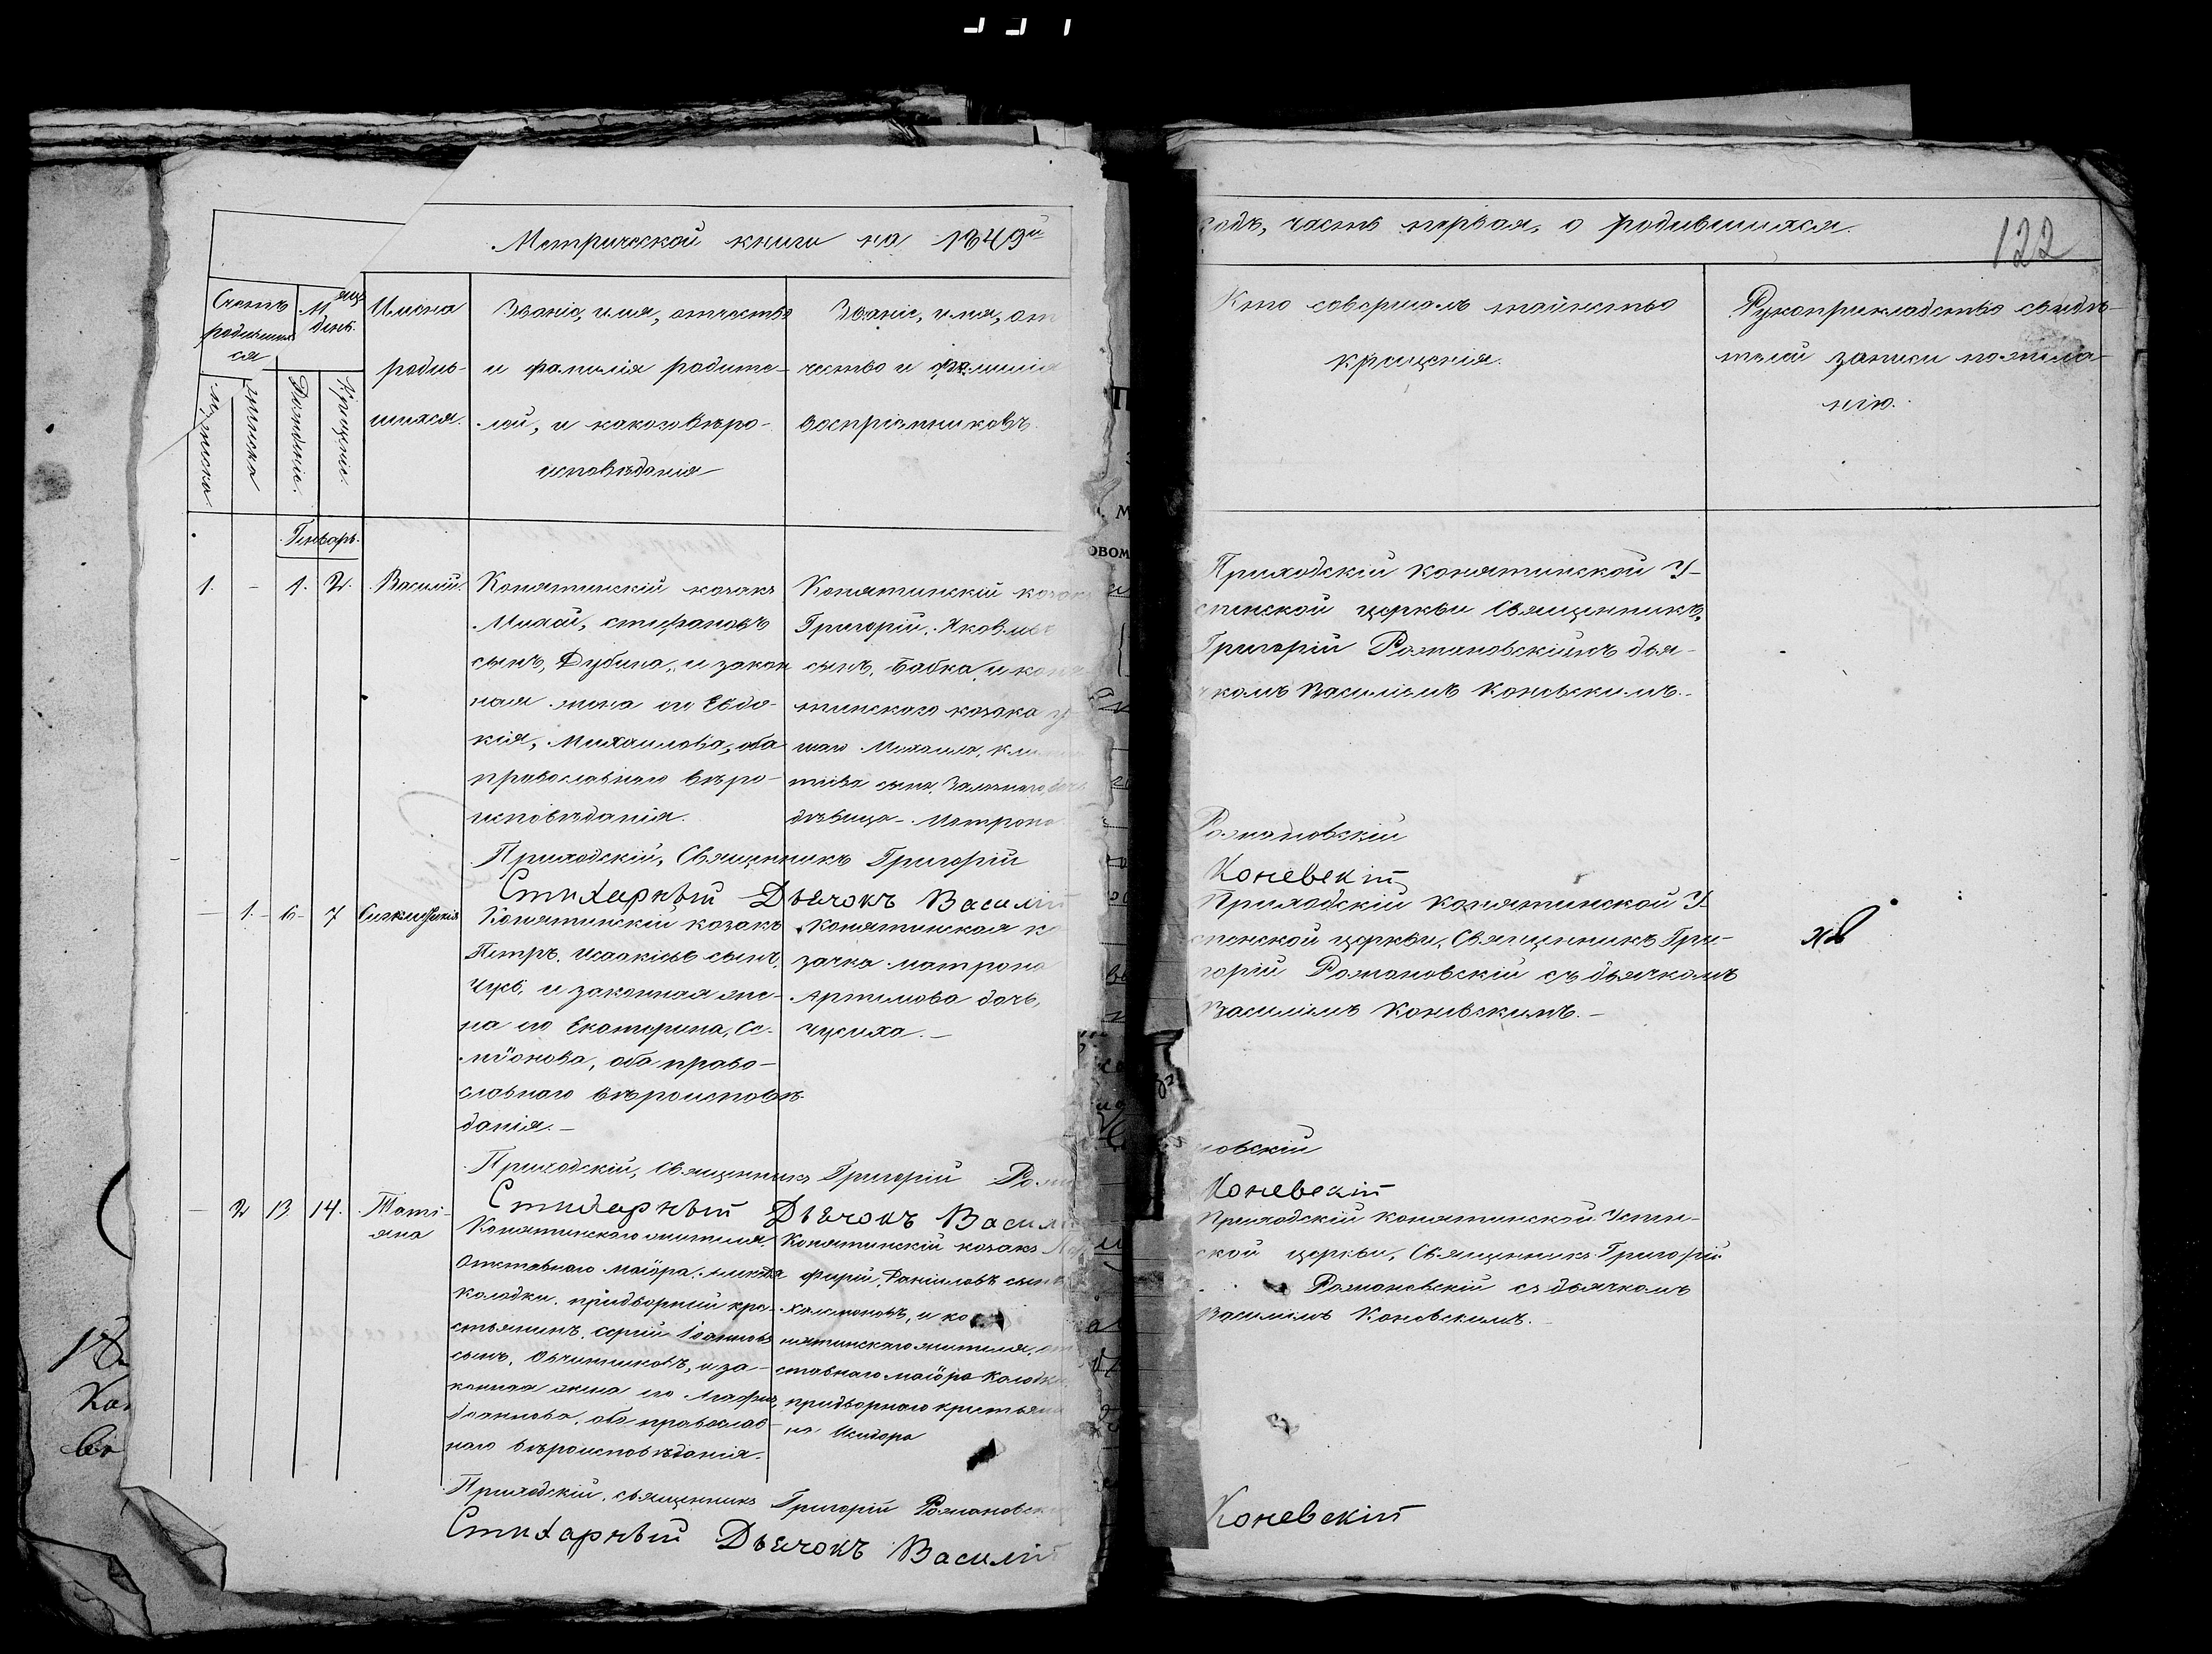 Метрической книги на 1849й
годъ, часть первая, о родившихся.
122
Счетъ
родивших
ся
Мѣсяцъ
день.
мужеска
женска
Рожденіе.
Крещеніе.
Имена
родив-
шихся.
Званіе, имя, отчество
и фамилія родите-
лей, и какого вѣро-
исповѣданія
Званіе, имя, от
чество и фамилія
воспріемниковъ.
Кто совершалъ таинство
крещенія.
Рукоприкладство свидѣ-
телей записи по жела-
нію.
Генварь.
1. - 1. 2. Василій.
Конятинскій козакъ
Михей, стефановъ
сынъ, Дубина, и закон
ная жена его Евдо-
кія, Михаилова, оба
православнаго вѣро-
исповѣданія.
Конятинскій козакъ
Григорій, Яковлевъ
сынъ, Бабка, и коня
тинскаго козака
Михаила,
сына,
дѣвица - Матрона
Приходскій Конятинской У-
спенской церкви Священникъ,
Григорій Романовскій съ дья-
комъ Василіемъ Коневскимъ.
Приходскій, Священникъ Григорій
Романовскій
Стихарный Дьячокъ Василій
Коневскій
- 1. 6 7
Конятинскій козакъ
Петръ, Исаакіевъ сынъ,
и законная же-
на его Екатерина, Се-
міонова, оба право-
славнаго вѣроисповѣ-
данія. -
Конятинская ко
зачка матрона
Артимова дочь,
Приходскій Конятинской У-
спенской церкви, Священникъ Гри-
горій Романовскій съ дьячкомъ
Василіемъ Коневскимъ. -
Приходскій, Священникъ Григорій Рома
новскій
Стихарный Дьячокъ Василій
Коневскій
- 2 13 14. Таті-
яна
Конятинскаго жителя,
Отставнаго маіора,
Колодки, придворный кре-
стьянинъ, сергій Іоанновъ
сынъ, Овчинниковъ, и за-
конная жена его
Іоаннова, оба православ
наго вѣроисповѣданія.
Конятинскій козакъ Пор
фирій, Даниловъ сынъ
и ко
нятинскаго жителя, от
ставнаго маіора Колодки
придворнаго крестьяни
на Исидора
Приходскій Конятинской Успен-
ской церкви, Священникъ Григорій
Романовскій съ дьячкомъ
Василіемъ Коневскимъ.
Приходскій, священникъ Григорій Романовскій
Стихарный Дьячокъ Василій
Коневскій